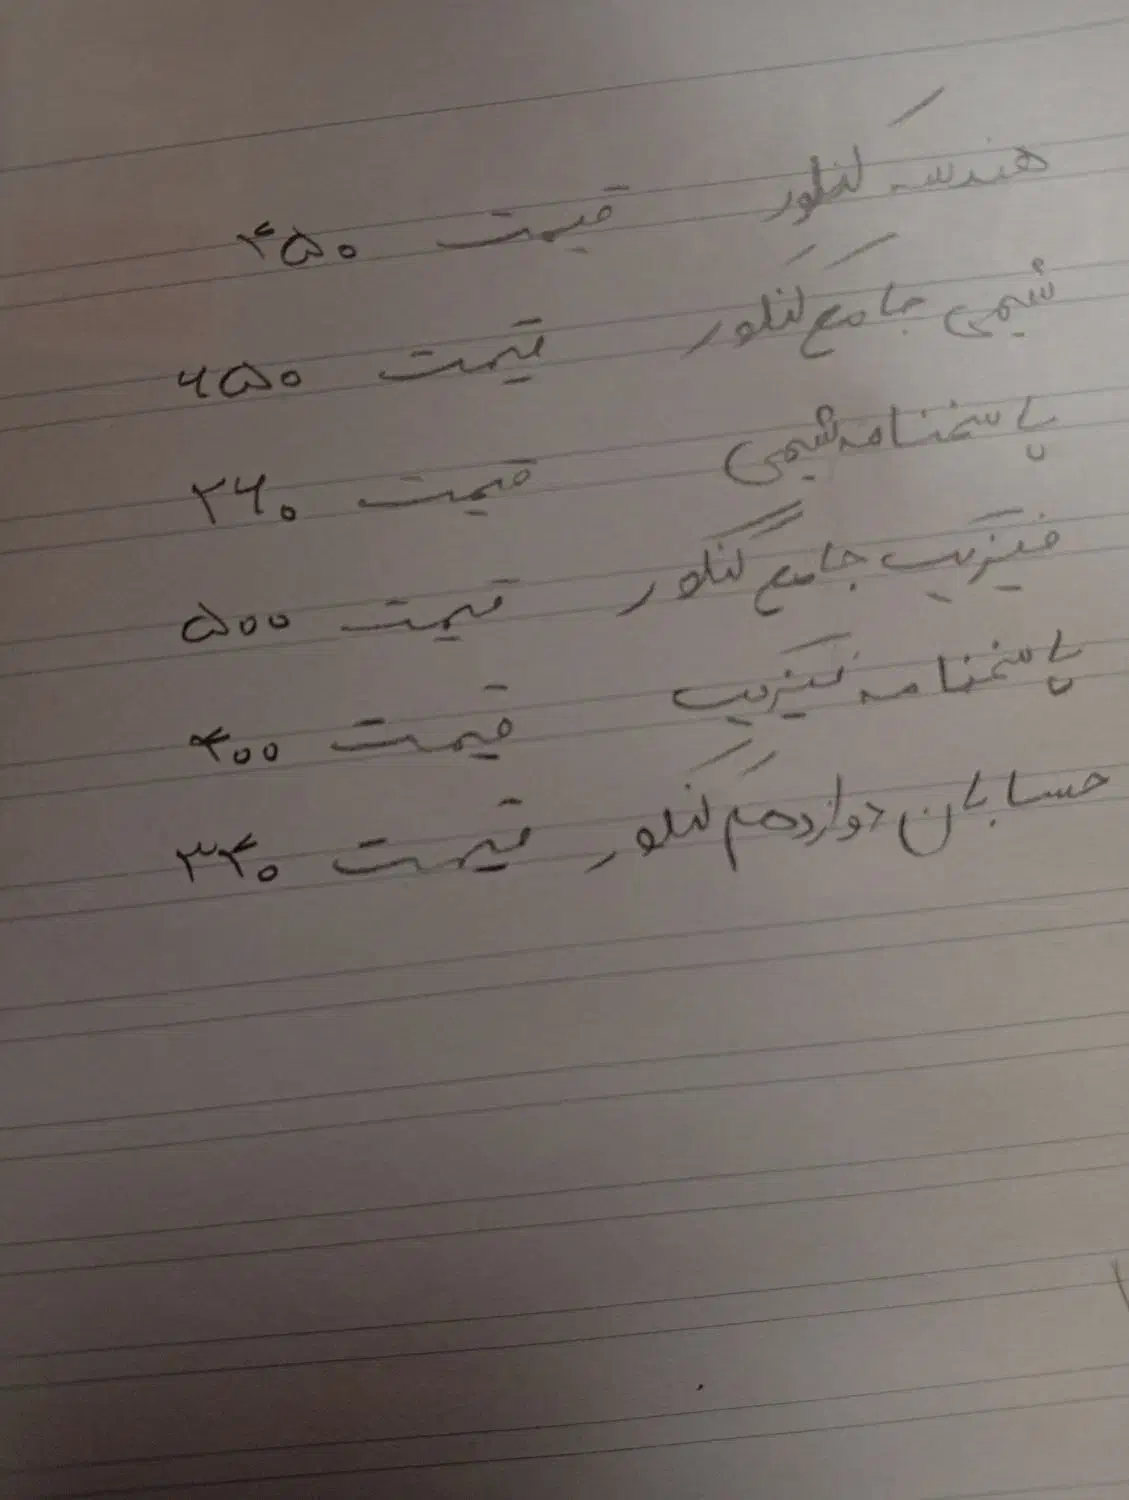 هندسه کنکور قیمت ۴۵۰
شیمی جامع کنکور قیمت ۶۵۰
پاسخنامه شیمی قیمت ۲۶۰
فیزیک جامع کنکور قیمت ۵۰۰
پاسخنامه فیزیک قیمت ۴۰۰
حسابان دوازدهم کنکور قیمت ۳۴۰